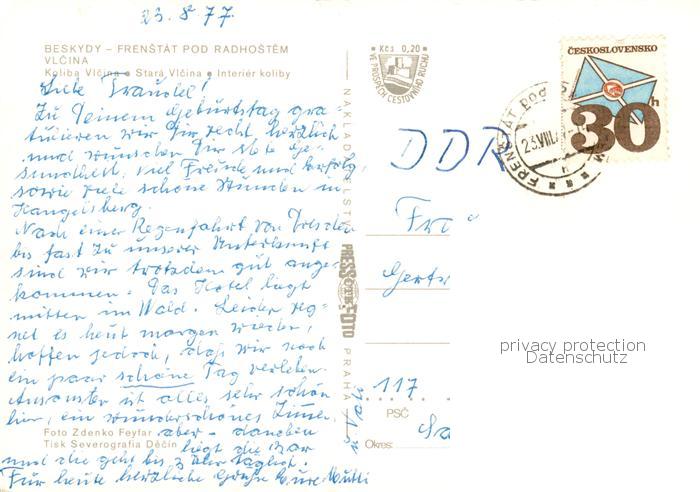 23.8.77.
BESKYDY – FRENŠTÁT POD RADHOŠTĚM
VLČINA
Koliba Vlčina • Stará Vlčina • Interiér koliby
Liebe Traudel!
Zu Deinem Geburtstag gra-
tulieren wir Dir recht herzlich
und wünschen Dir stete Ge-
sundheit, viel Freude und Erfolg,
sowie viele schöne Stunden in
Hangelsberg.
Nach einer Regenfahrt von Dresden
bis fast zu unserer Unterkunft
sind wir trotzdem gut ange-
kommen. Das Hotel liegt
mitten im Wald. Leider reg-
net es heut morgen wieder,
hoffen jedoch, daß wir noch
ein paar schöne Tag verleben.
Ansonsten ist alles sehr schön
hier, ein wunderschönes Zimmer
aber – daneben
liegt die Bar
und die geht bis 3 Uhr täglich.
Für heute herzliche Grüße Eure Mutti
Foto Zdenko Feyfar
Tisk Severografia Děčín
NAKLADATELSTVÍ
PRESSFOTO
PRAHA
Kčs 0,20
VE PROSPĚCH CESTOVNÍHO RUCHU
ČESKOSLOVENSKO
30h
FRENŠTÁT POD
23.VIII.
DDR
Fra
Gertr
117
PSČ
Okres:
privacy protection
Datenschutz